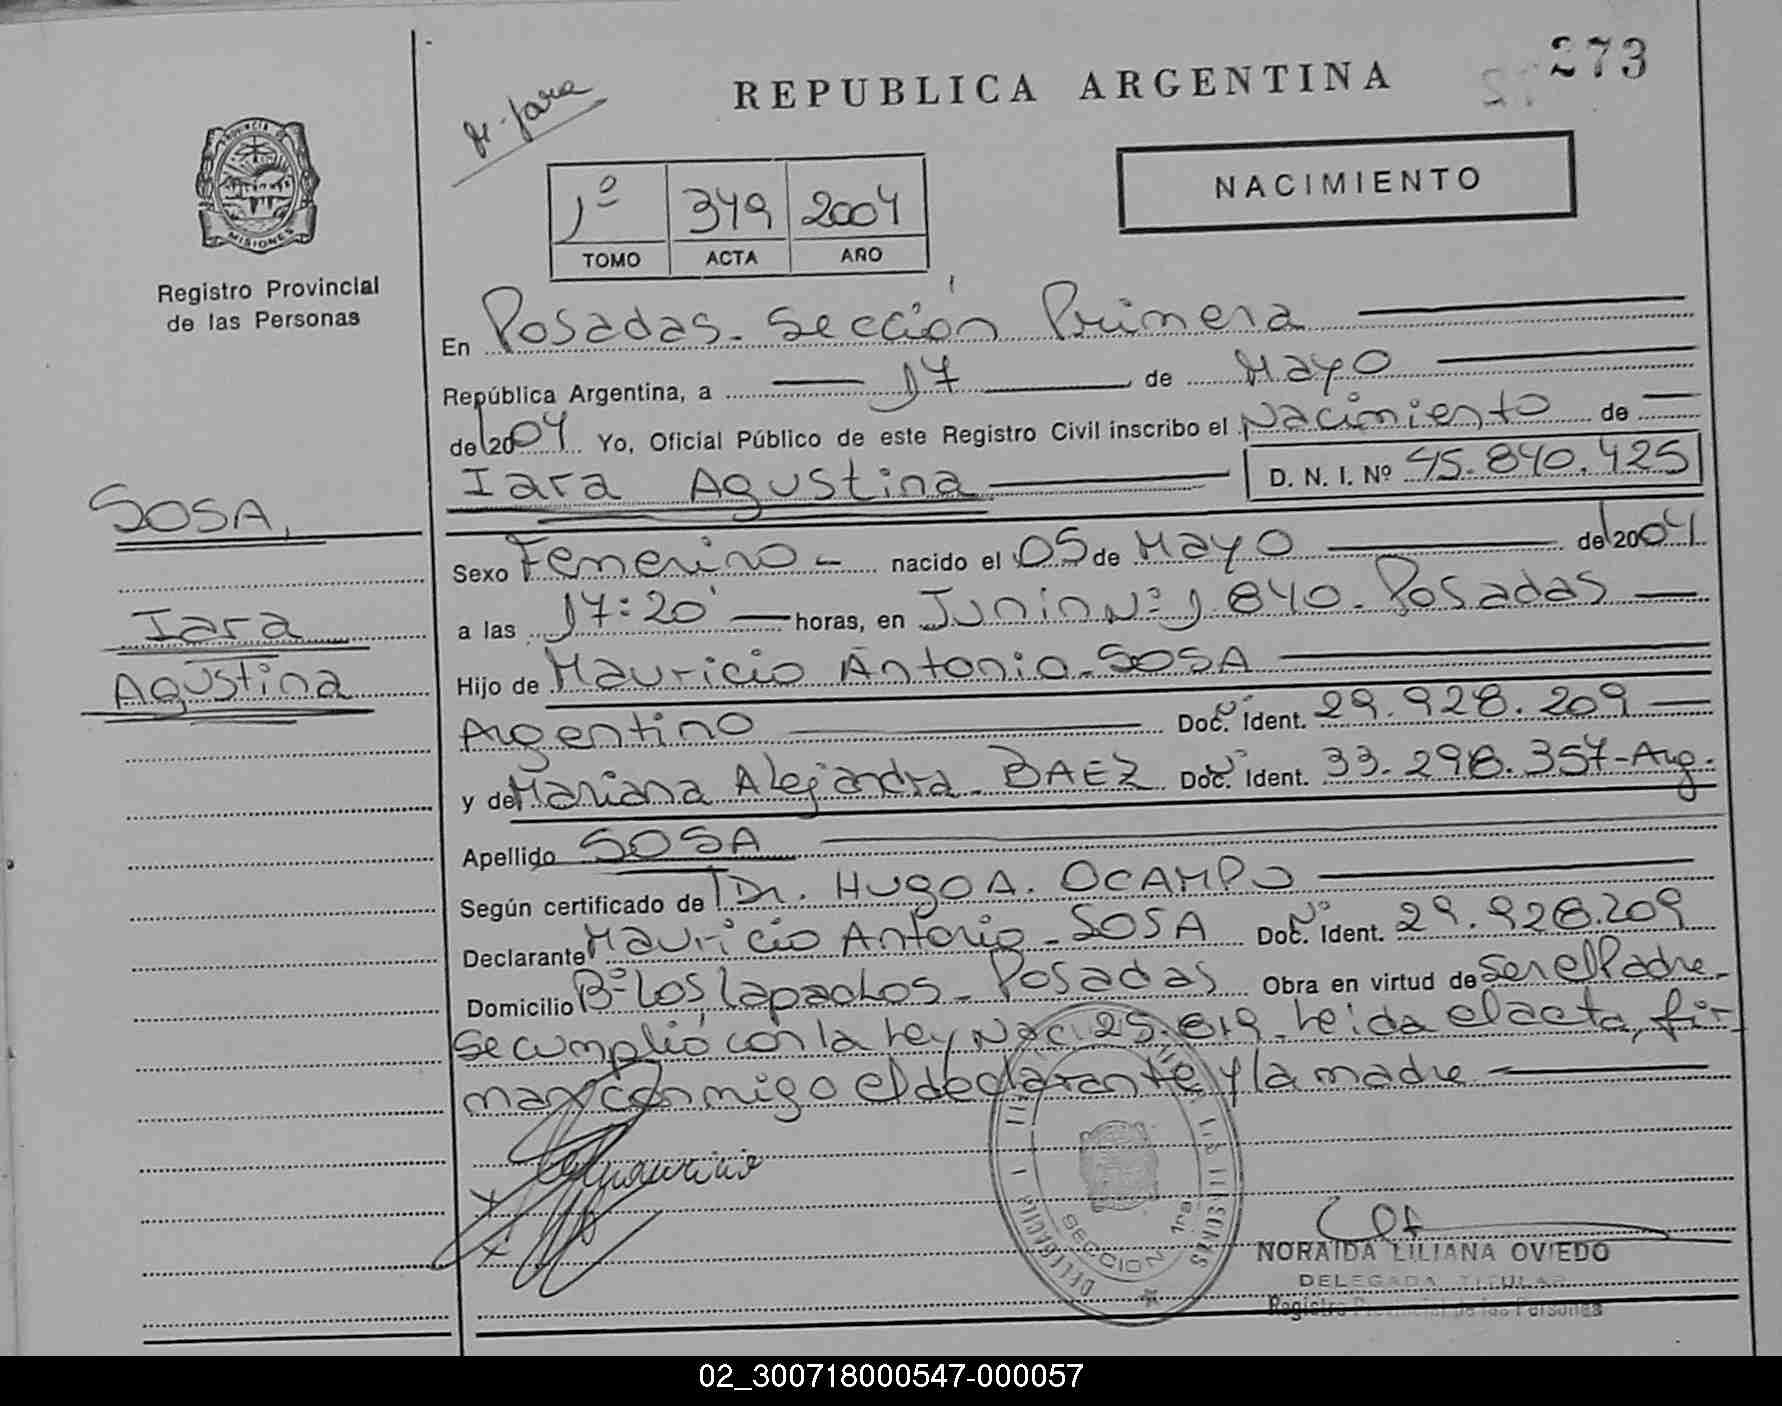 273
REPUBLICA ARGENTINA
NACIMIENTO
1º 349 2004
TOMO ACTA AÑO
PROVINCIA DE
MISIONES
Registro Provincial
de las Personas
SOSA,
Iara
Agustina
En Posadas - Sección Primera
República Argentina, a 17 de Mayo
del 2004 Yo, Oficial Público de este Registro Civil inscribo el Nacimiento de
Iara Agustina D. N. I. Nº 45.840.425
Sexo Femenino - nacido el 05 de Mayo del 2004
a las 17:20' horas, en Junin Nº 1.840 - Posadas
Hijo de Mauricio Antonio - SOSA
Argentino Doc. Nº Ident. 29.928.209
y de Mariana Alejandra - BAEZ Doc. Nº Ident. 33.298.357 - Arg.
Apellido SOSA
Según certificado de Dr. HUGO A. OCAMPO
Declarante Mauricio Antonio - SOSA Doc. Nº Ident. 29.928.209
Domicilio Bº Los lapachos - Posadas Obra en virtud de Ser el Padre -
Se cumplió con la Ley Nac. 25.819. Leida el acta, fir
man conmigo el declarante y la madre
SECCION 1ra
NORAIDA LILIANA OVIEDO
DELEGADA TITULAR
Registro Provincial de las Personas
02_300718000547-000057